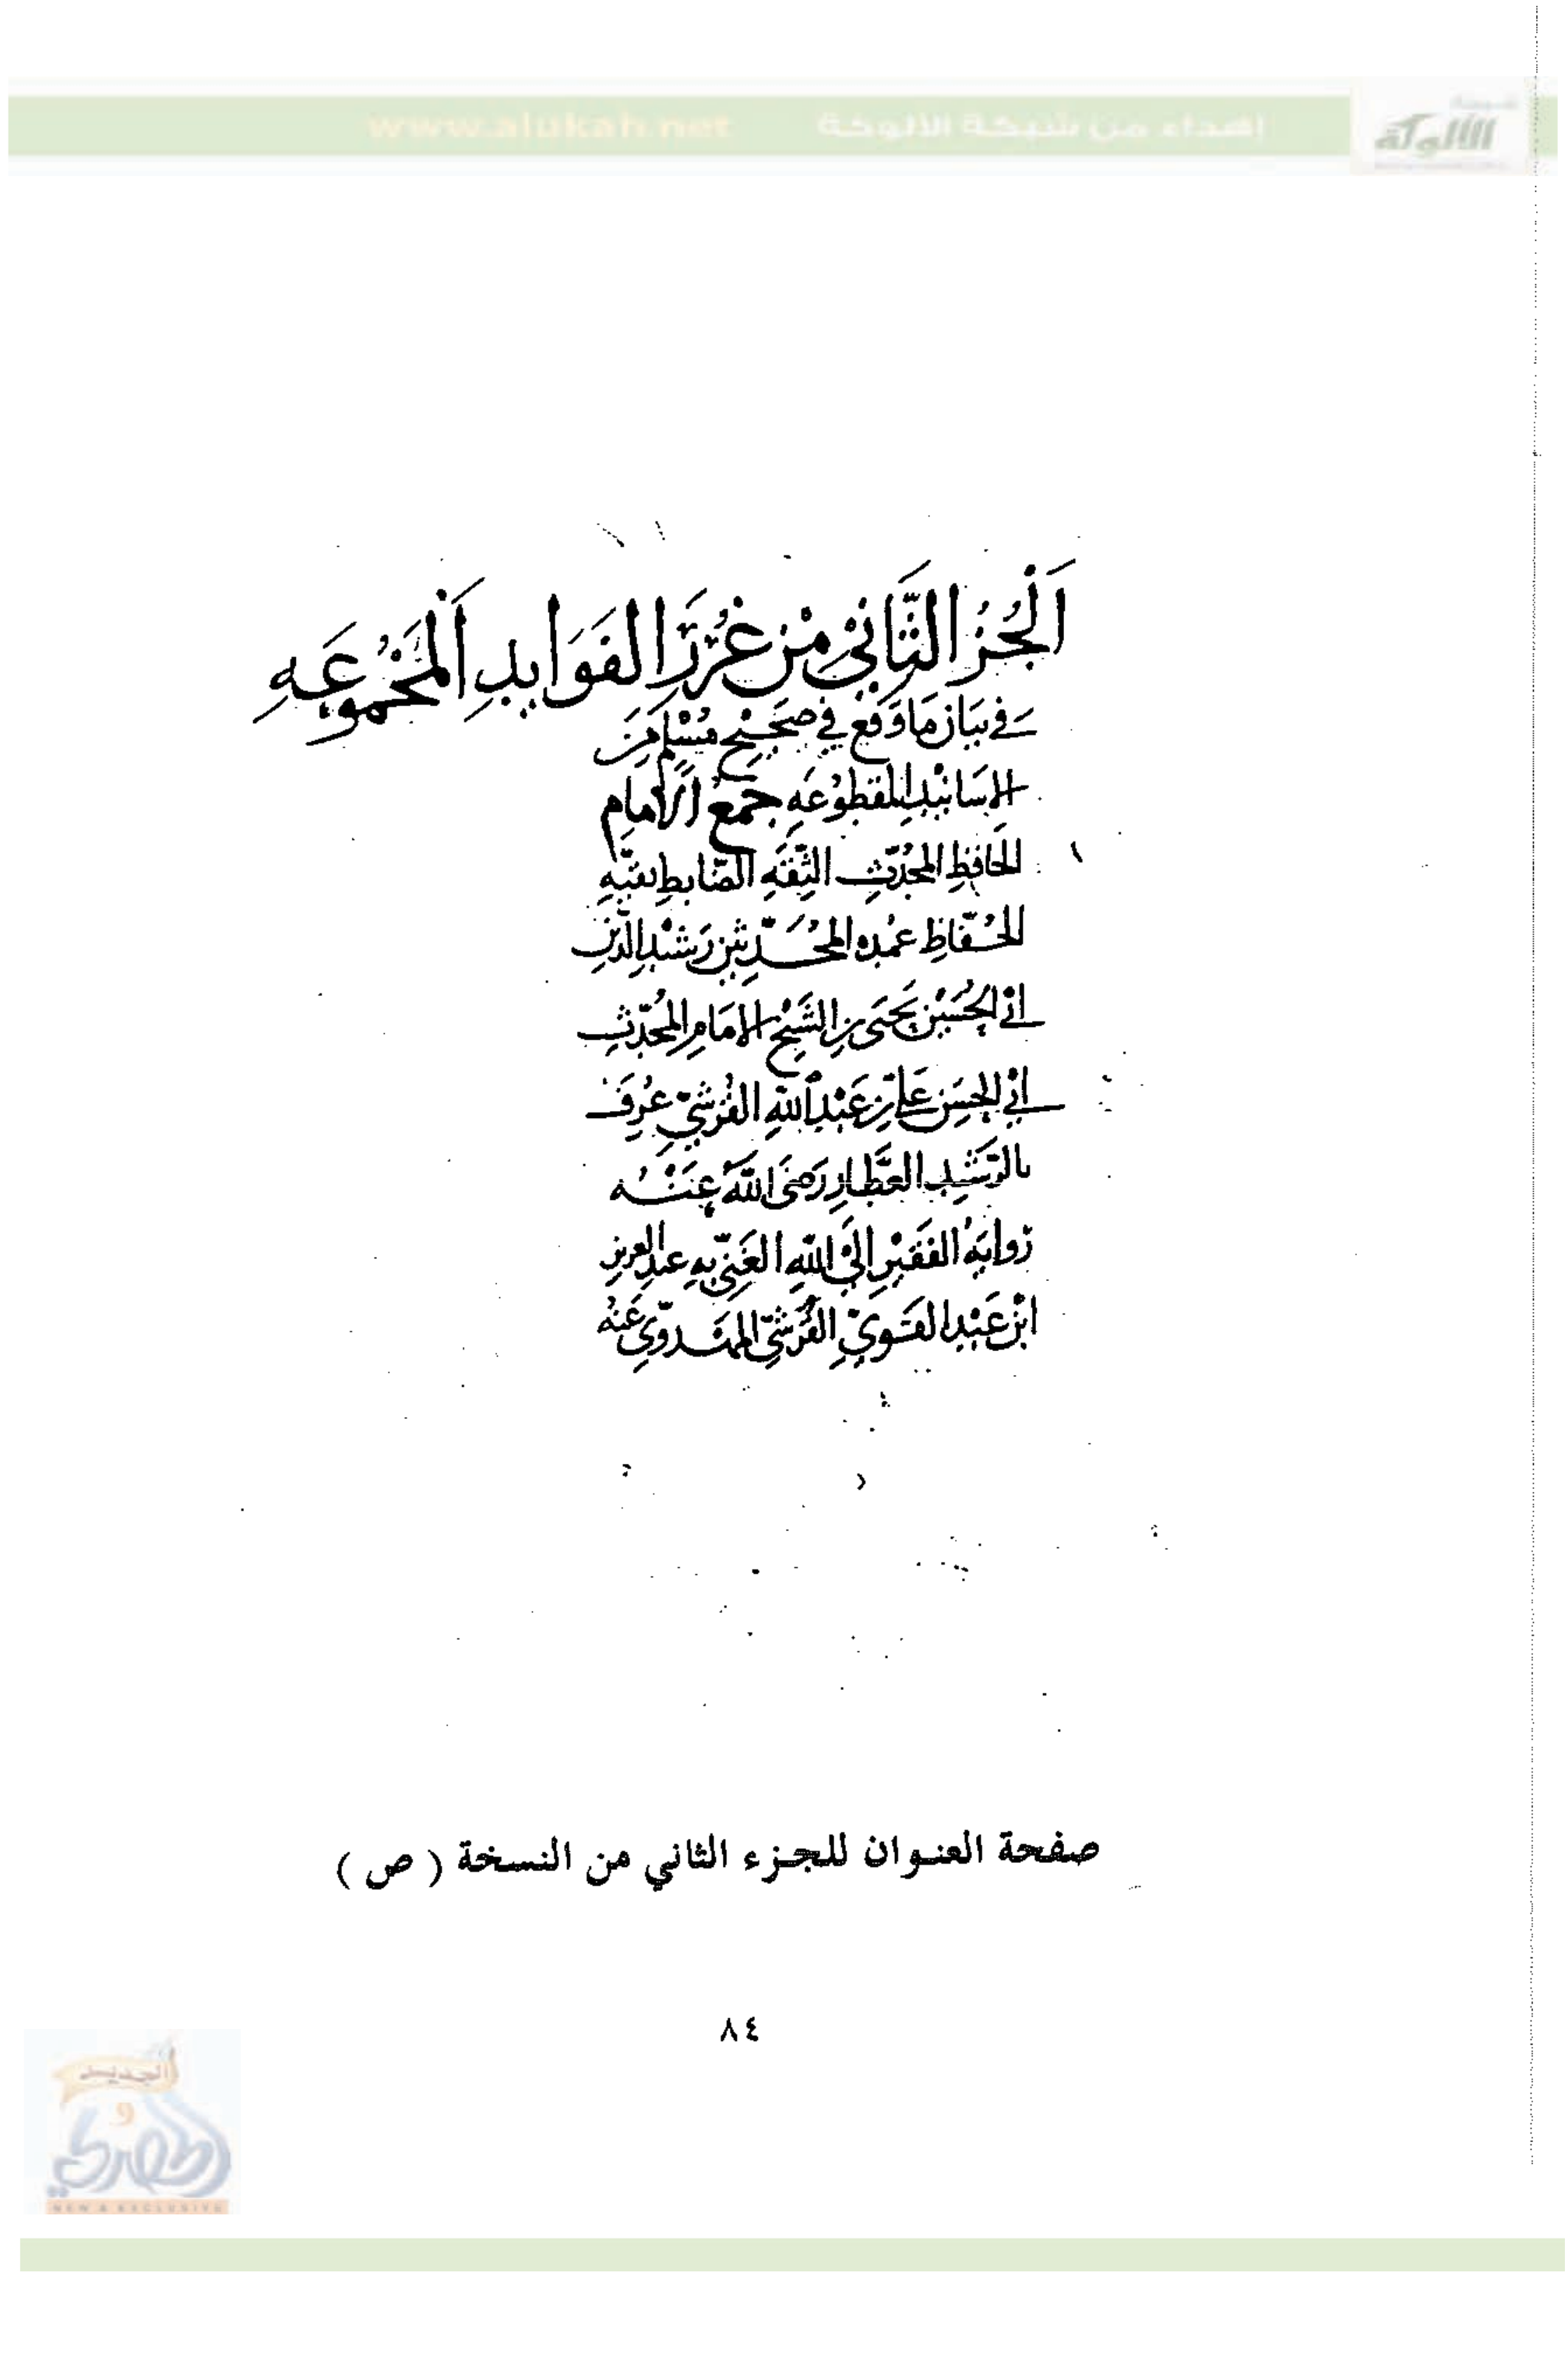 www.alukah.net إهداء من شبكة الألوكة
شبكة
الألوكة
اَلْجُزُ الثَّانِيْ مِنْ غُرَرِ الفَوَايِدِ الْمَجْمُوعَهِ
في بَيَان مَا وَقَعَ فِي صَحِيْحِ مُسْلِمٍ مِنَ
الاسَانِيْدِ المَقْطُوْعَهِ جَمْعُ الإمامِ
الحَافِظِ المحُدِّثِ الثِّقَهِ الضَّابِطِ بقيّهِ
الحُفَّاظِ عُمْده المُحَدِّثِيْنَ رَشيْدِ الدِّيْنِ
ابي الحُسَيْنِ يَحْيَى بنِ الشَّيْخِ الامَامِ المُحدِّثِ
ابي الحَسَنِ عَلي بْنِ عَبْدِ اللهِ القُرَشيِّ عُرِفَ
بالرَّشيد العَطَّارِ رَضيَ اللهُ عَنْهُ
رِوايَهُ الفَقيْرِ إليَ اللهِ الغَنيِّ بهِ عبدِ العزيزِ
ابْنِ عَبْدِ القَويْ القُرَشيِّ المهْدويِّ عَنْهُ
صفحة العنوان للجزء الثاني من النسخة ( ص )
٨٤
الجديد
و
الحصري
NEW & EXCLUSIVE